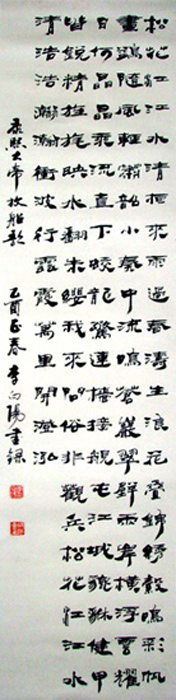 松花江江水清夜來雨過春濤生浪花疊錦繡縠明彩帆
畫鷁隨風輕簫韶小奏中流鳴蒼巖翠壁兩岸橫浮雲耀
日何晶晶乘流直下蛟龍驚連檣接艦屯江城貔貅健甲
皆銳精旌旄映水翻朱纓我來問俗非觀兵松花江江水
清浩浩瀚瀚衝波行雲霞萬里開澄泓
康熙大帝放船歌 乙酉正春 李向陽書錄